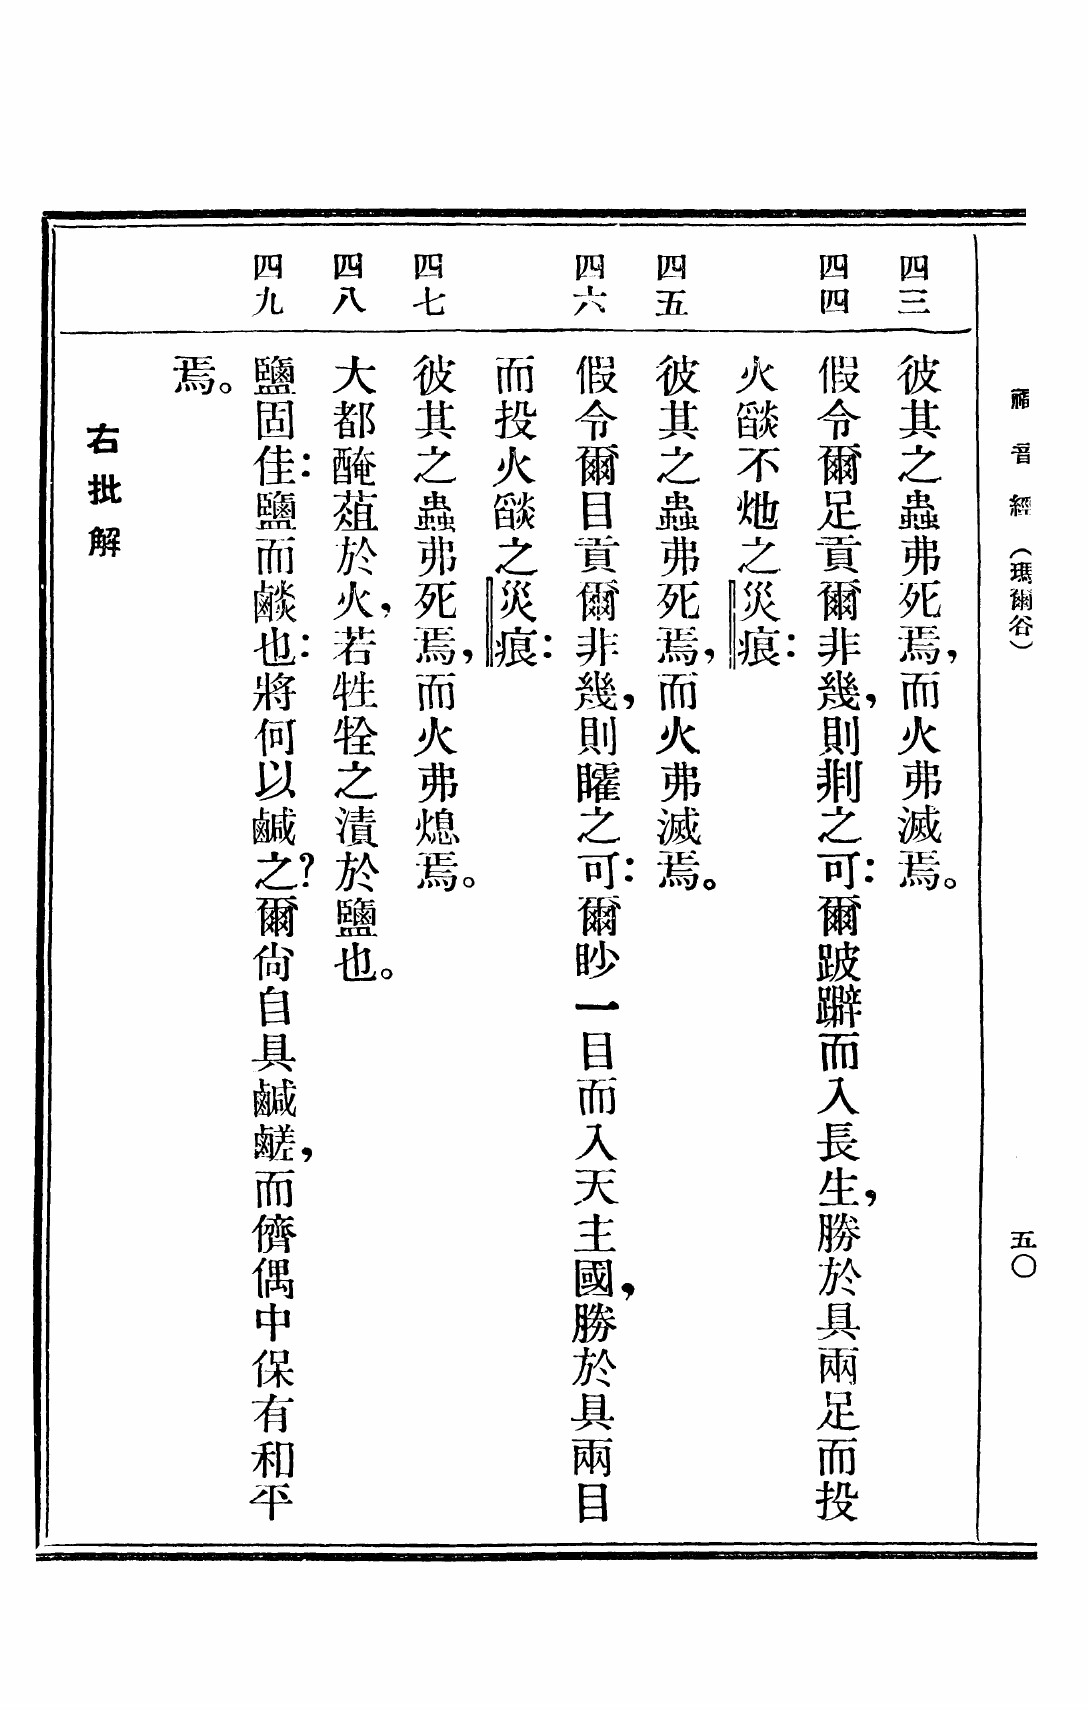 福音經（瑪爾谷）　五〇
四三　彼其之蟲弗死焉，而火弗滅焉。
四四　假令爾足貢爾非幾，則剕之可：爾跛躃而入長生，勝於具兩足而投
火燄不灺之災痕：
四五　彼其之蟲弗死焉，而火弗滅焉。
四六　假令爾目貢爾非幾，則矐之可：爾眇一目而入天主國，勝於具兩目
而投火燄之災痕：
四七　彼其之蟲弗死焉，而火弗熄焉。
四八　大都醃葅於火，若牲牷之漬於鹽也。
四九　鹽固佳：鹽而也：將何以鹹之？爾尙自具鹹鹺，而儕偶中保有和平
焉。
右批解